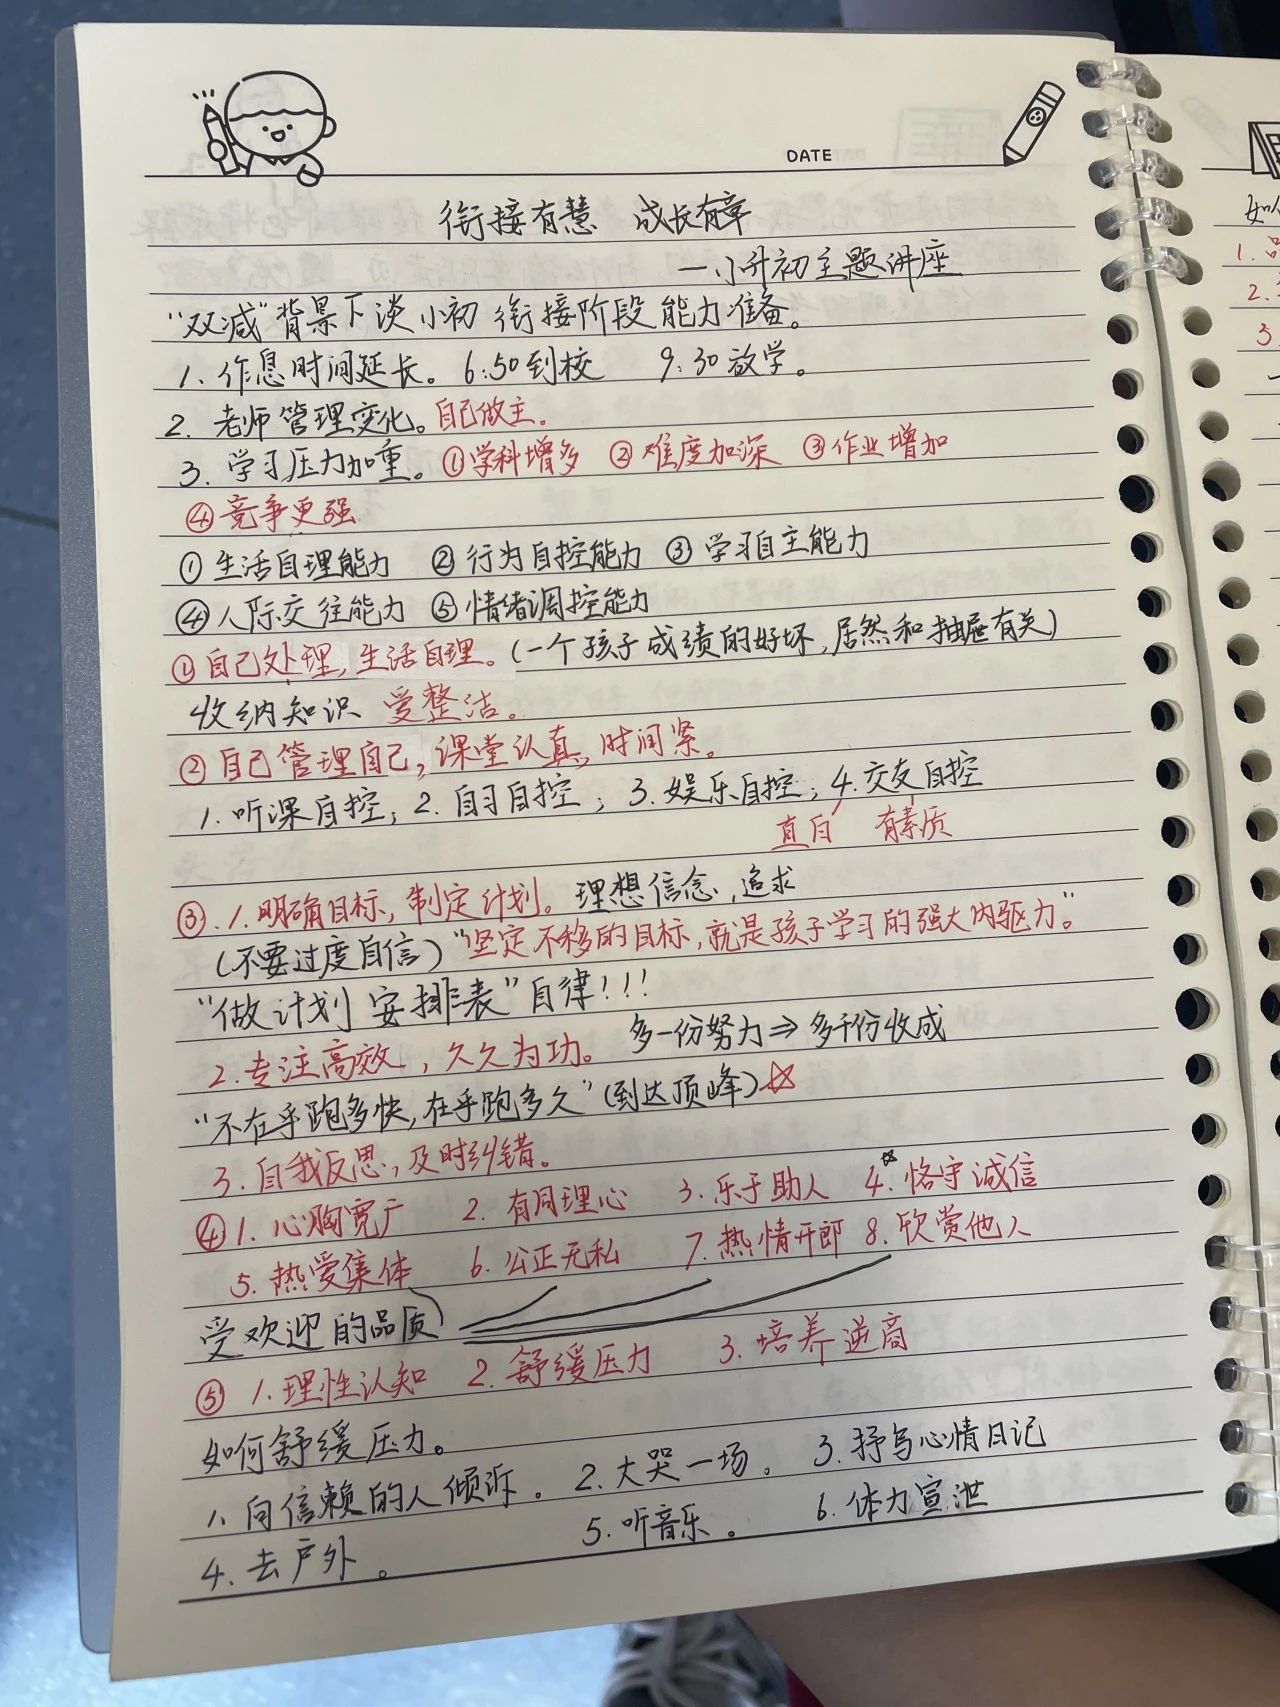 DATE
衔接有慧 成长有章
—小升初主题讲座
"双减"背景下谈小初衔接阶段能力准备。
1. 作息时间延长。6:50到校 9:30放学。
2. 老师管理变化。自己做主。
3. 学习压力加重。①学科增多 ②难度加深 ③作业增加
④竞争更强
①生活自理能力 ②行为自控能力 ③学习自主能力
④人际交往能力 ⑤情绪调控能力
①自己处理,生活自理。(一个孩子成绩的好坏,居然和抽屉有关)
收纳知识 爱整洁。
②自己管理自己,课堂认真,时间紧。
1. 听课自控; 2. 自习自控; 3. 娱乐自控; 4. 交友自控
直白 有素质
③.1.明确目标,制定计划。理想信念,追求
(不要过度自信)"坚定不移的目标,就是孩子学习的强大内驱力。"
"做计划 安排表"自律!!!
2.专注高效,久久为功。 多一份努力⇒多千份收成
"不在乎跑多快,在乎跑多久"(到达顶峰)☆
3. 自我反思,及时纠错。
④1. 心胸宽广 2. 有同理心 3. 乐于助人 4.☆恪守诚信
5. 热爱集体 6. 公正无私 7. 热情开郎 8. 欣赏他人
受欢迎的品质
⑤ 1.理性认知 2. 舒缓压力 3. 培养逆商
如何舒缓压力。
1. 向信赖的人倾诉。 2. 大哭一场。 3. 抒写心情日记
4. 去户外。 5. 听音乐。 6. 体力宣泄
如
1.
2.
3.